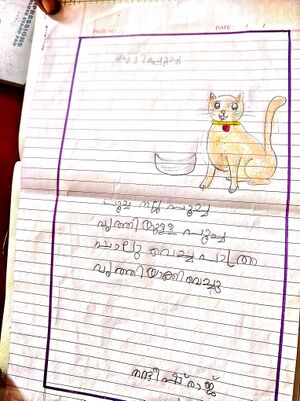 PAGE NO
DATE: / /
പൂച്ച നല്ല പൂച്ച
വൃത്തിയുള്ള പൂച്ച
പാലു വെച്ച പാത്രം
വൃത്തിയാക്കിവെച്ചു